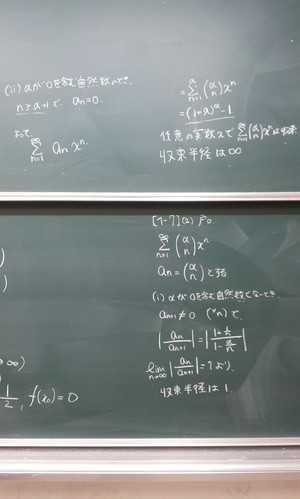 (ii) αが0を含む自然数のとき,
n≧α+1で, an=0.
よって
∑_{n=1}^{∞} an xⁿ
=∑_{n=1}^{α} (α n) xⁿ
=(1+x)^α-1
任意の実数xで ∑_{n=1}^{∞} (α n) xⁿ は収束
収束半径は∞
→∞)
1/2, f(x₀)=0
[1-7](2)
∑_{n=1}^{∞} (α n) xⁿ
an=(α n) とおく
(i) αが0を含む自然数でないとき,
an+1≠0 (∀n)で
|an/an+1|=|(1+1/n)/(1-α/n)|
lim_{n→∞} |an/an+1|=1より,
収束半径は1.